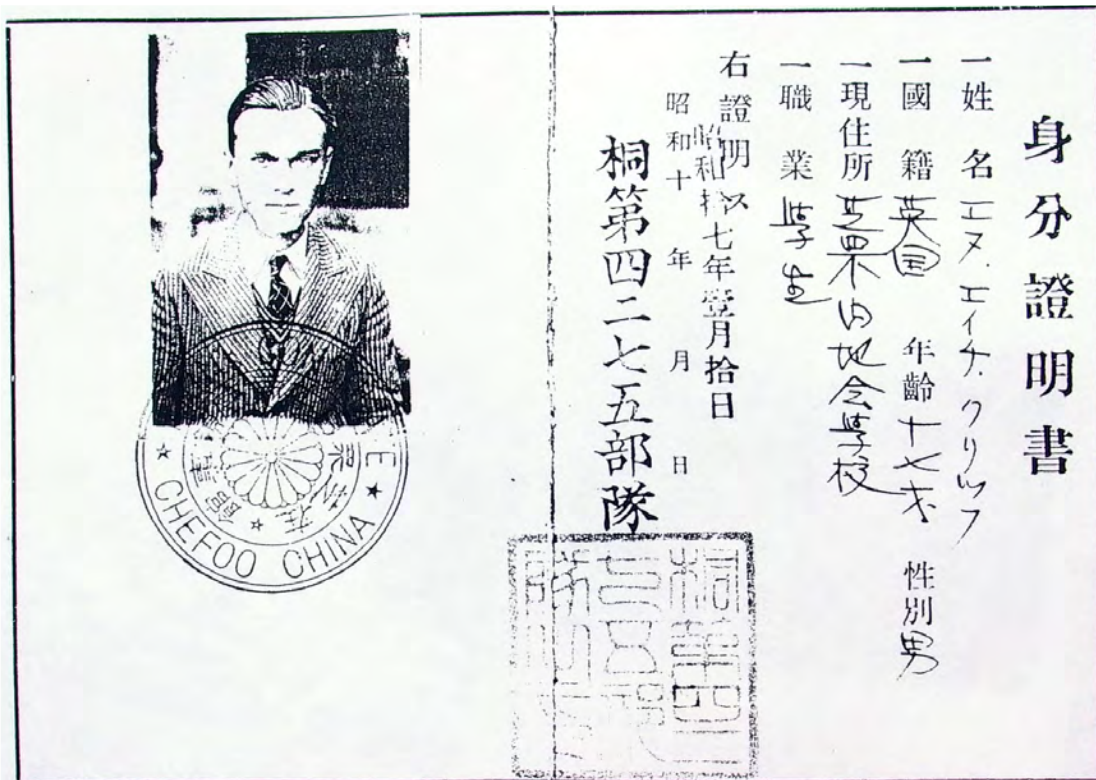 身分證明書
一姓名 エヌ.エイチ.クリッフ
一國籍 英国 年齢十七才 性別男
一現住所 芝罘内地会學校
一職業 學生
右證明ス
昭和拾七年壹月拾日
昭和十 年 月 日
桐第四二七五部隊
CHEFOO CHINA